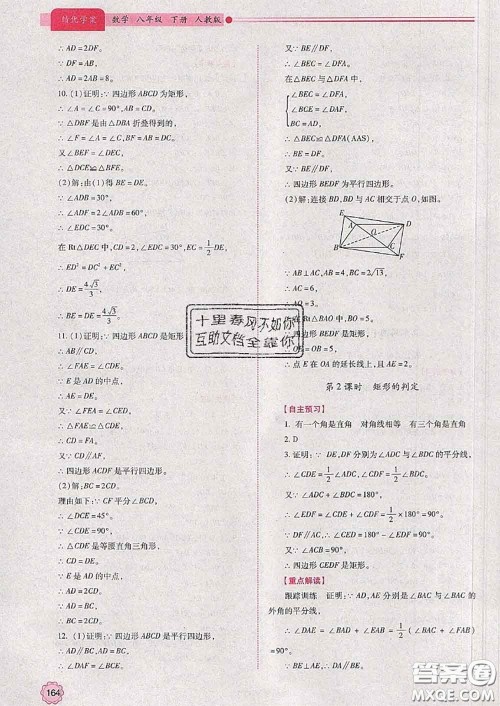 精优学案 数学 八年级 下册 人教版
∴ AD=2DF。
∵ DF=AB,
∴ AD=2AB=8。
10. (1)证明:∵ 四边形 ABCD 为矩形,
∴ ∠A=∠C=90°,AB=CD。
∵ △DBF 是由 △DBA 折叠得到的,
∴ ∠F=∠A=∠C,BF=AB=CD。
又∠BEF=∠DEC,
∴ △DCE≌△BFE。
(2)解:由(1)得 BE=DE。
∵ ∠ADB=30°,
∴ ∠ADF=2∠ADB=60°,
∴ ∠EDC=30°。
在 Rt△DEC 中,CD=2,∠EDC=30°,EC=1/2 DE,
∴ ED²=DC²+EC²,
∴ DE=4√3/3,
∴ BE=DE=4√3/3。
11. (1)证明:∵ 四边形 ABCD 是矩形
∴ AB∥CD,
∴ ∠FAE=∠CDE。
∵ E 是 AD 的中点,
∴ AE=DE。
又∵ ∠FEA=∠CED,
∴ △FAE≌△CDE,
∴ CD=FA。
又∵ CD∥AF,
∴ 四边形 ACDF 是平行四边形。
(2)解:BC=2CD。
理由如下:∵ CF 平分∠BCD,
∴ ∠DCE=45°。
∵ ∠CDE=90°,
∴ △CDE 是等腰直角三角形,
∴ CD=DE。
∵ E 是 AD 的中点,
∴ AD=2CD。
∵ AD=BC,
∴ BC=2CD。
12. (1)证明:∵ 四边形 ABCD 是平行四边形
∴ AD∥BC,AD=BC,
∴ ∠DAF=∠BCE。
164
又∵ DF∥BE,
∴ ∠BEF=∠DFE,
∴ ∠BEC=∠DFA。
在△BEC 与△DFA 中,
∠BEC=∠DFA,
∠BCE=∠DAF,
BC=AD,
∴ △BEC≌△DFA(AAS),
∴ BE=DF。
又∵ BE∥DF,
∴ 四边形 BEDF 为平行四边形。
(2)解:连接 BD,BD 与 AC 相交于点 O,如图:
E
A
D
O
B
F
C
∵ AB⊥AC,AB=4,BC=2√13,
∴ AC=6,
∴ AO=3,
∴ Rt△BAO 中,BO=5。
∵ 四边形 BEDF 是矩形,
∴ OE=OB=5,
∴ 点 E 在 OA 的延长线上,且 AE=2。
第 2 课时 矩形的判定
【自主预习】
1. 有一个角是直角 对角线相等 有三个角是直角
2. D
3. 证明:∵ DE,DF 分别为∠ADC 与∠BDC 的平分线,
∴ ∠EDC=1/2∠ADC,∠CDF=1/2∠BDC。
∵ ∠ADC+∠BDC=180°,
∴ ∠EDF=∠EDC+∠CDF=1/2×180°=90°。
∵ DF∥AC,∴ ∠AED=∠EDF=90°,
∴ ∠CED=90°。
又∵ ∠ACB=90°,
∴ 四边形 CEDF 是矩形。
【重点解读】
跟踪训练 证明:∵ AE,AD 分别是∠BAC 与∠BAC 的外角的平分线,
∴ ∠DAE=∠BAD+∠BAE=1/2×180°=90°。
∵ BE⊥AE,∴ DA∥BE。
十里春风不如你
互助文档全靠你
答案圈
MXQE.COM